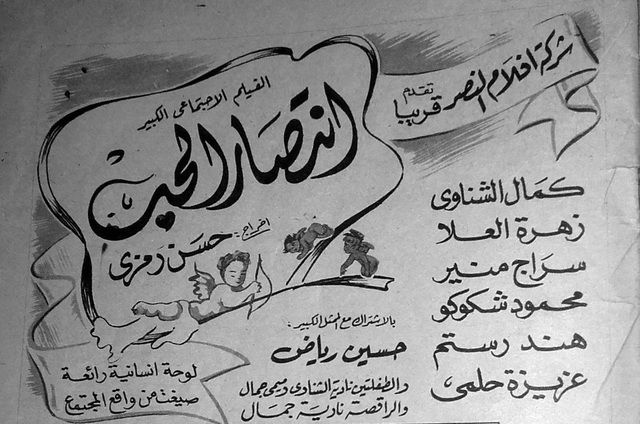 شركة افلام النصر
تقدم
قريبا
الفيلم الاجتماعى الكبير
انتصار الحب
اخراج: حسن رمزى
كمال الشناوى
زهرة العلا
سراج منير
محمود شكوكو
هند رستم
عزيزة حلمى
بالاشتراك مع الممثل الكبير:
حسين رياض
والطفلتين نادية الشناوى وميمى جمال
والراقصة نادية جمال
لوحة انسانية رائعة
صيغت من واقع المجتمع